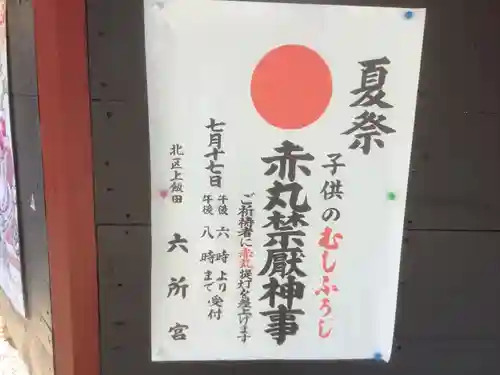 夏祭
子供のむしふうじ
赤丸禁厭神事
ご祈祷者に赤丸提灯を差上げます
七月十七日
午後六時より受付
午後八時まで
北区上飯田
六所宮